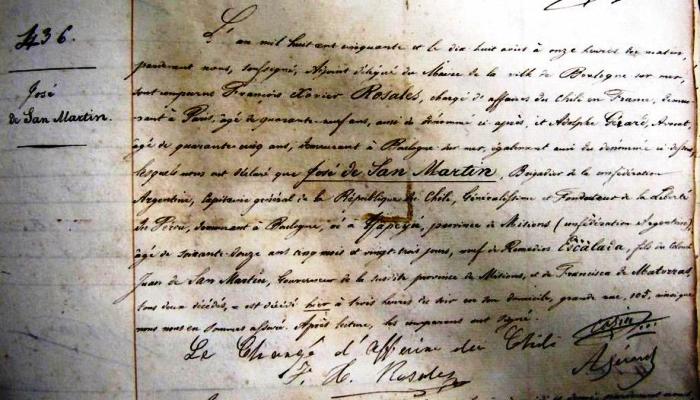 436.
José
De San Martin.
L'an mil huit cent cinquante et le dix huit août à onze heures du matin,
pardevant nous, soussigné, Adjoint délégué du Maire de la ville de Boulogne sur mer,
sont comparus François Xavier Rosales, chargé de affaires du Chili en France, demeu
rant à Paris, âgé de quarante neuf ans, ami du dénommé ci après, et Adolphe Gérard, Avocat,
âgé de quarante cinq ans, demeurant à Boulogne sur mer, également ami du dénommé ci dessous
lesquels nous ont déclaré que José de San Martin, Brigadier de la confédération
Argentine, Capitaine général de la République du Chili, Généralissime et Fondateur de la Liberté
du Pérou, demeurant à Boulogne, né à Yapeyu, province de Misiones (confédération Argentine)
âgé de soixante douze ans cinq mois et vingt trois jours, veuf de Remedios Escalada, fils du Colonel
Juan de San Martin, Gouverneur de la susdite province de Misiones, et de Francisca de Matorras,
tous deux décédés, est décédé hier à trois heures du soir en son domicile, grande rue, 105, ainsi que
nous nous en sommes assuré. Après lecture, les comparans ont signé.
Le Chargé d'affaires du Chili
F. X. Rosales
A Gerard